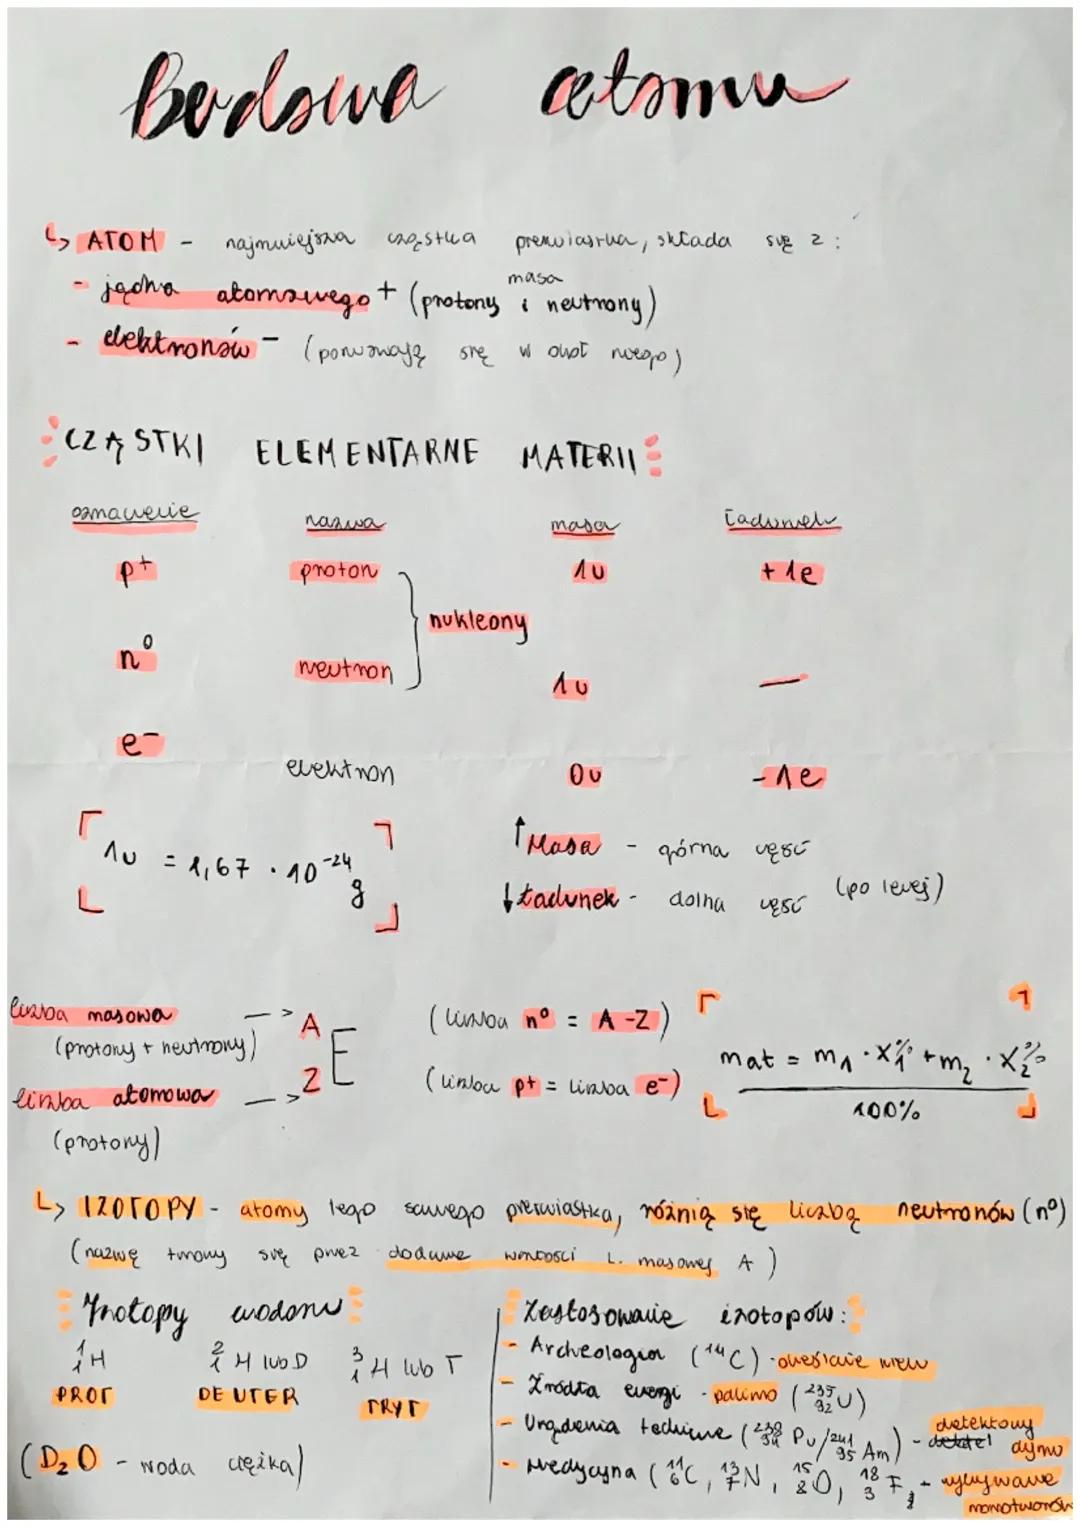 Budowa atomu
↳ ATOM - najmniejsza cząstka pierwiastka, składa się z :
- jądra atomowego + (protony i neutrony) masa
- elektronów - (poruszają się w okół niego)
CZĄSTKI ELEMENTARNE MATERII
oznaczenie nazwa masa ładunek
p⁺ proton 1u +1e
nukleony
n⁰ neutron 1u —
e⁻ elektron 0u -1e
1u = 1,67 · 10⁻²⁴ g
↑ Masa - górna część
↓ Ładunek - dolna część (po lewej)
liczba masowa —> A
(protony + neutrony)
E
liczba atomowa —> Z
(protony)
(liczba n⁰ = A-Z)
(liczba p⁺ = liczba e⁻)
mat = m₁ · x₁% + m₂ · x₂%
100%
↳ IZOTOPY - atomy tego samego pierwiastka, różnią się liczbą neutronów (n⁰)
(nazwę tworzy się przez dodanie wartości L. masowej A)
Izotopy wodoru
¹₁H ²₁H lub D ³₁H lub T
PROT DEUTER TRYT
(D₂O - woda ciężka)
Zastosowanie izotopów:
- Archeologia (¹⁴C) - określanie wieku
- Źródła energi - paliwo (²³⁵₉₂U)
- Urządzenia techniczne (²³⁸₉₄Pu/²⁴¹₉₅Am) - detektory dymu
- Medycyna (¹¹₆C, ¹³₇N, ¹⁵₈O, ¹⁸₃F, - wykrywanie nowotworów